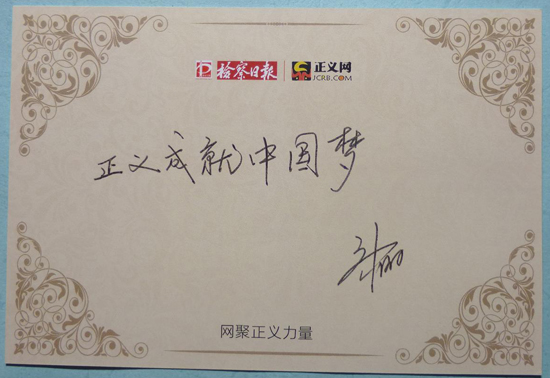 检察日报 正义网
JCRB.COM
正义成就中国梦
网聚正义力量